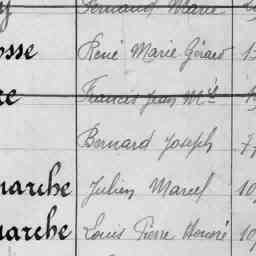 Fernand Marie
osse René Marie Gérard 1
re Francis Jean Mie
Bernard Joseph 7
marche Julien Marcel 10
marche Louis Pierre Honoré 10